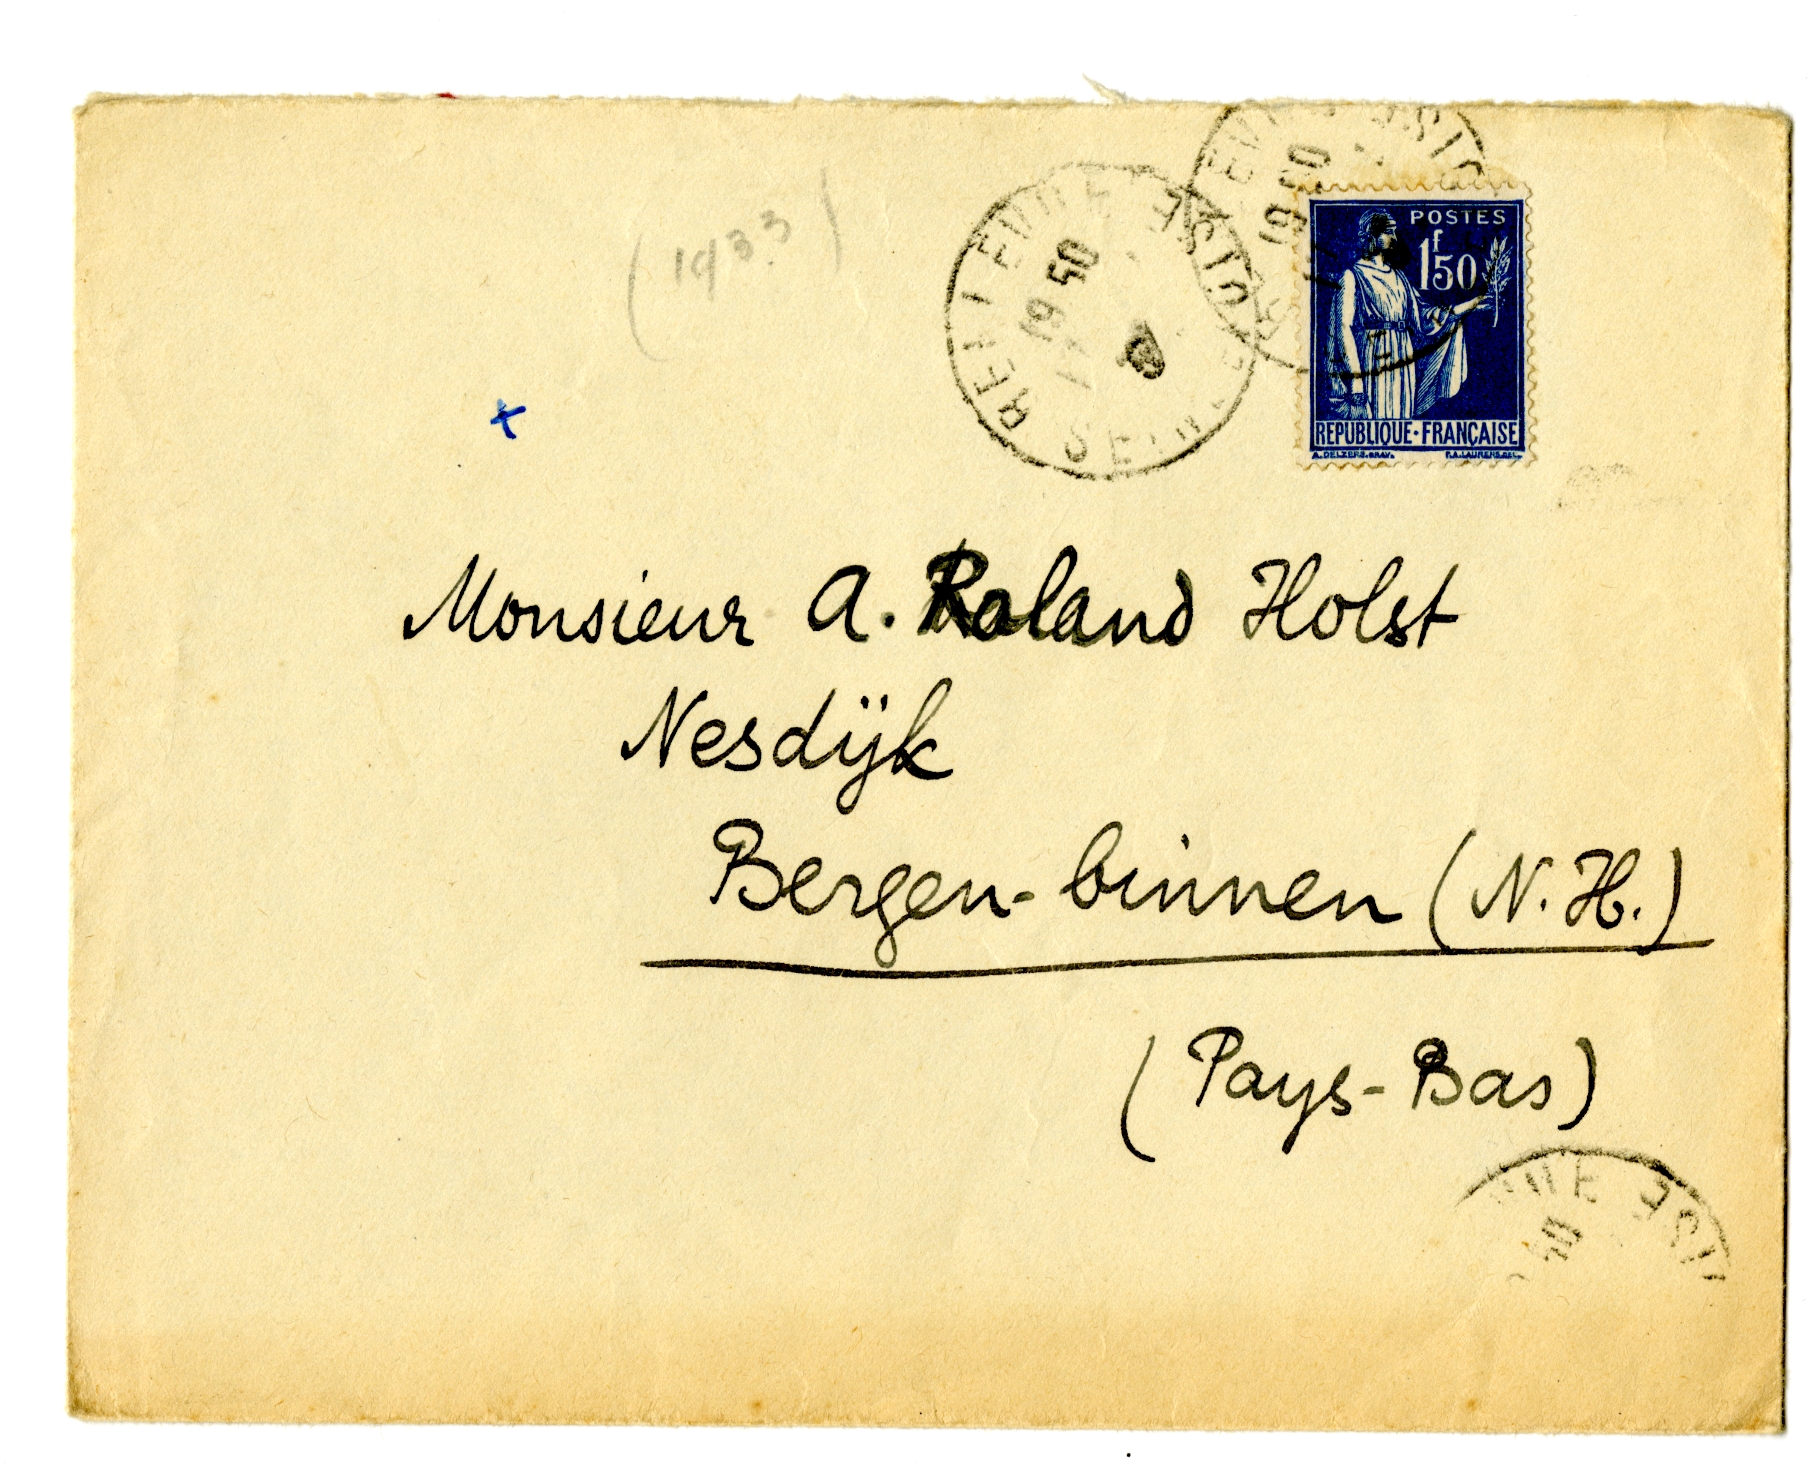 (1933)
19 50
POSTES
1f50
REPUBLIQUE·FRANÇAISE
A. DELZERS. GRAV. P.A. LAURENS. DEL.
Monsieur A. Roland Holst
Nesdijk
Bergen-binnen (N.H.)
(Pays-Bas)